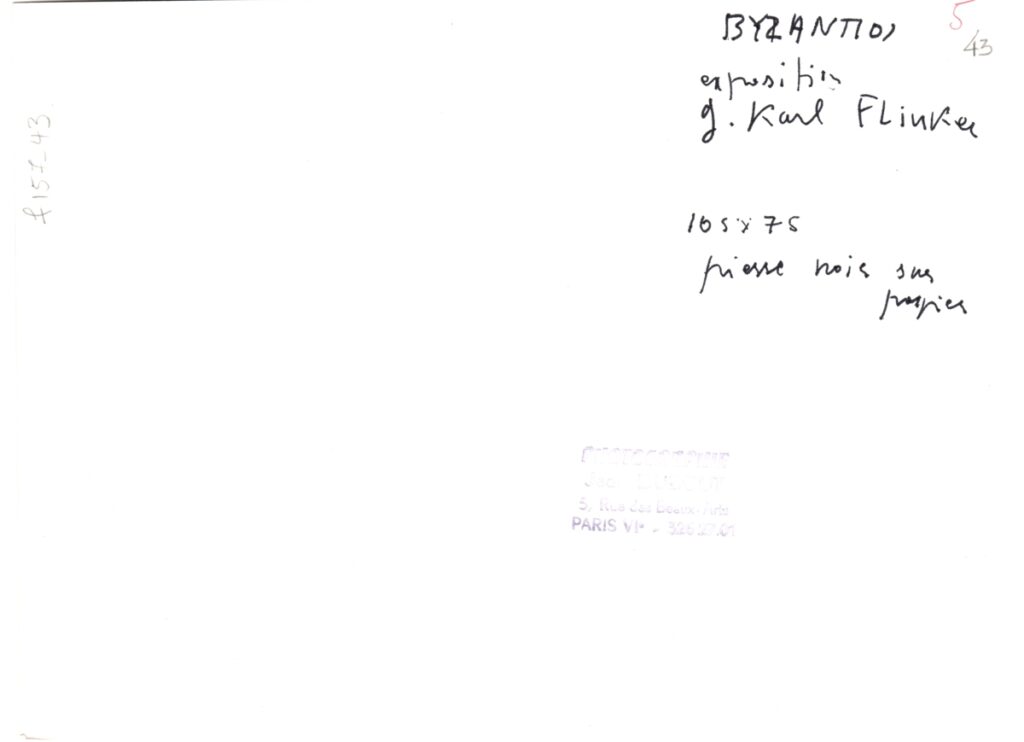 BYZANTIOS
5
/43
exposition
g. Karl Flinker
f 151_43
105x75
pierre noire sur
papier
PHOTOGRAPHIE
5, Rue des Beaux-Arts
PARIS VIe - 326.27.01